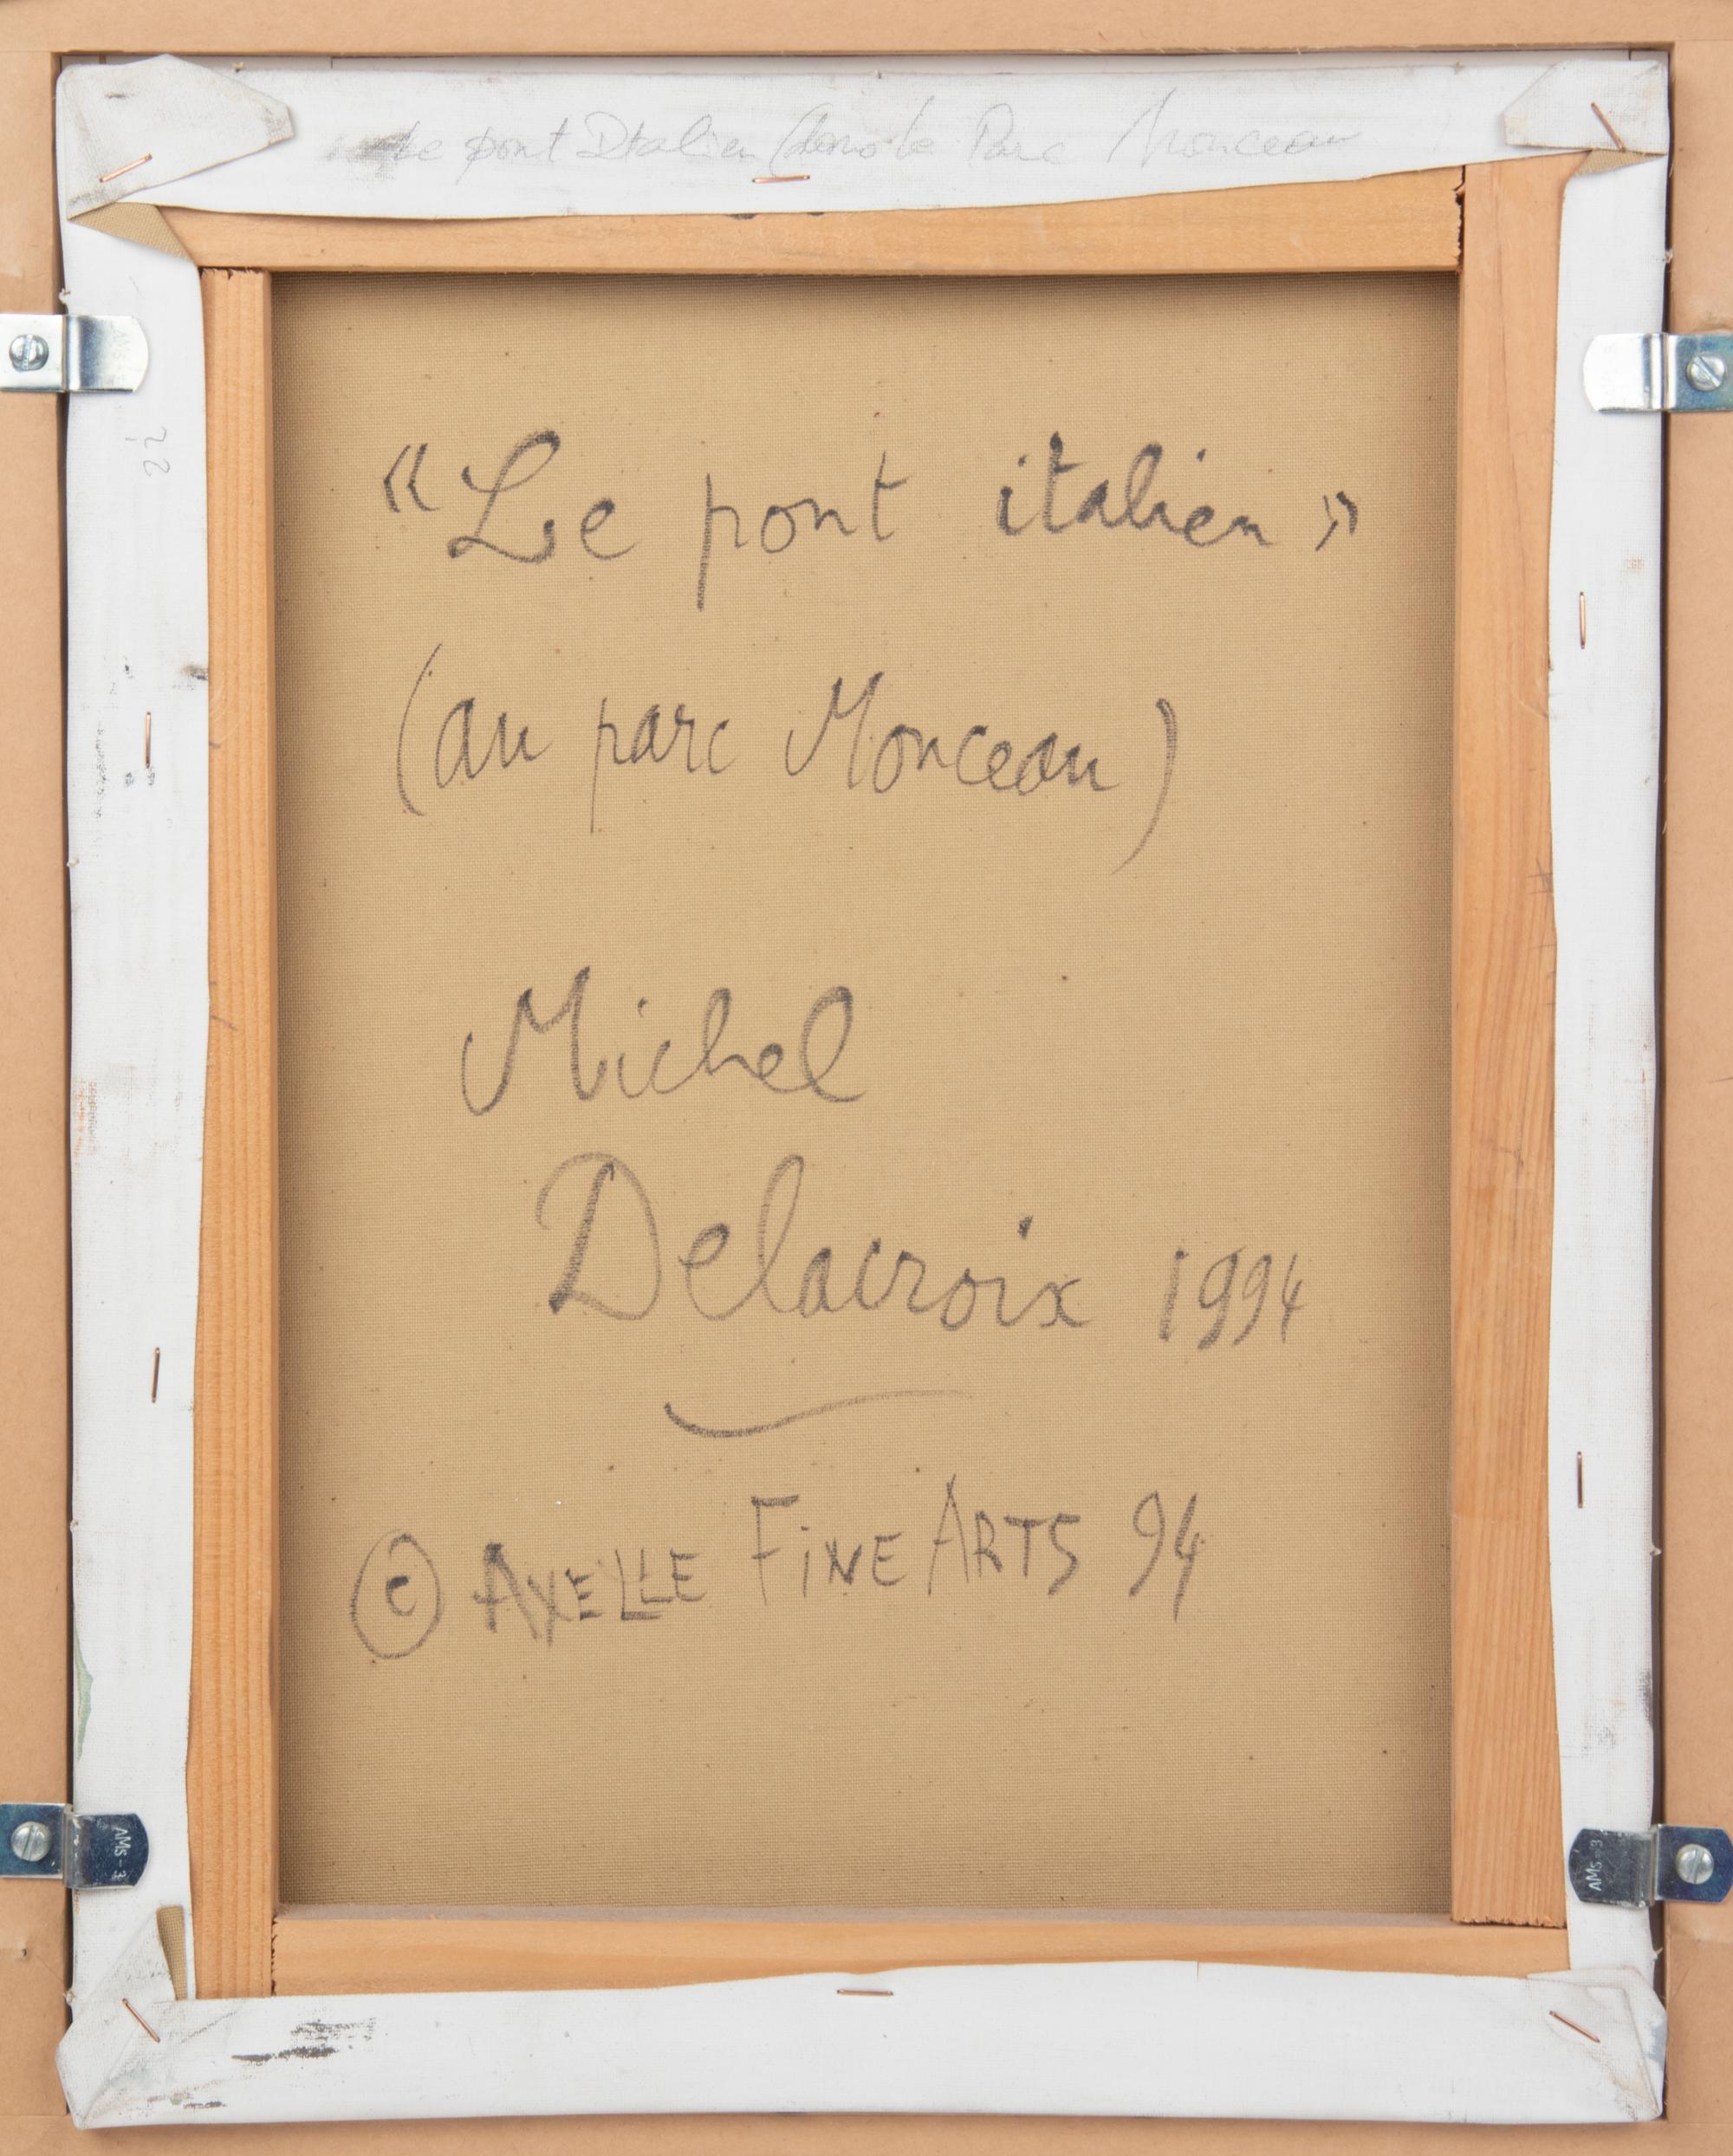 Le pont Italien dans le Parc Monceau
« Le pont italien »
(au parc Monceau)
Michel
Delacroix 1994
© AXELLE FiNE ARTS 94
AMS-3
AMS-3